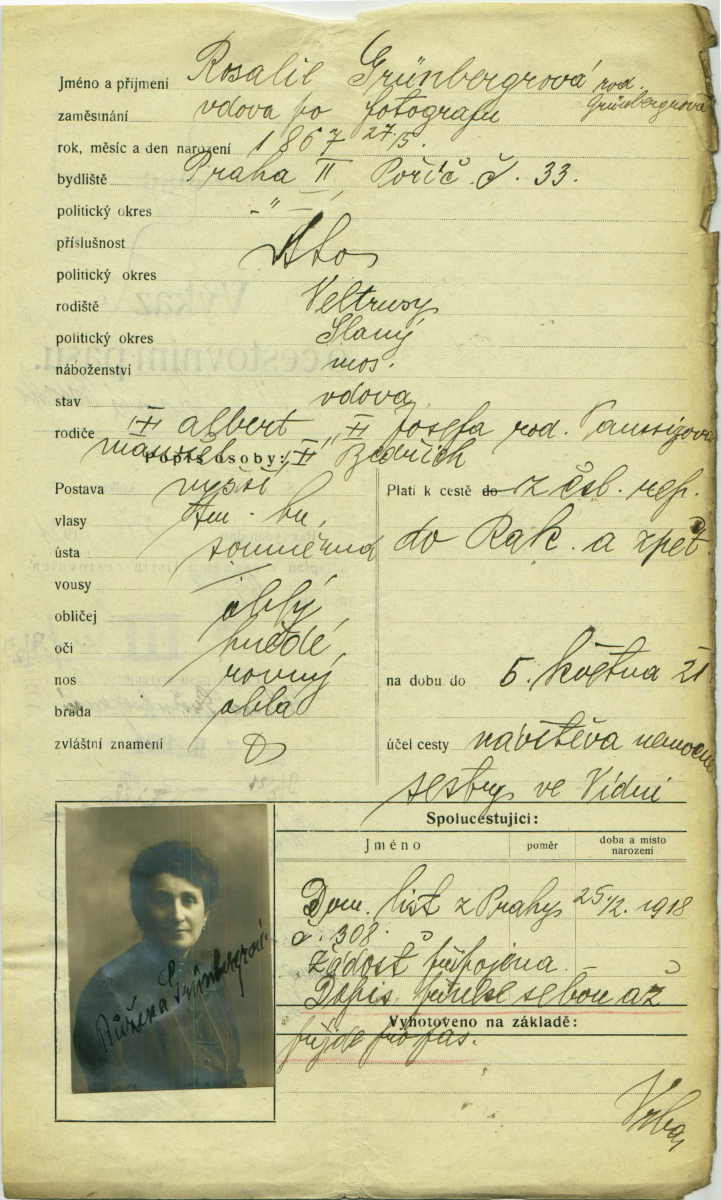 Jméno a příjmení Rosalie Grünbergrová rod. Grünbergrová
zaměstnání vdova po fotografu
rok, měsíc a den narození 1867 27/5.
bydliště Praha II, Poříč č. 33.
politický okres -"-
příslušnost
politický okres
rodiště Veltrusy
politický okres Slaný
náboženství mos.
stav vdova
rodiče Albert Josefa rod. Taussigova
manžel Bedřich
Popis osoby:
Postava vyšší
vlasy tm. hn.
ústa souměrná
vousy
obličej oblý
oči hnědé
nos rovný
brada oblá
zvláštní znamení
Platí k cestě do z čsl. rep.
do Rak. a zpět
na dobu do 5. května 21
účel cesty návštěva nemocné
sestry ve Vídni
Spolucestující:
Jméno poměr doba a místo narození
Dom. list z Prahy 25/2. 1918
č. 308.
Žádost připojena.
Dopis přinese sebou až
Vyhotoveno na základě:
přijde pro pas.
Vrba
Růžena Grünbergrová